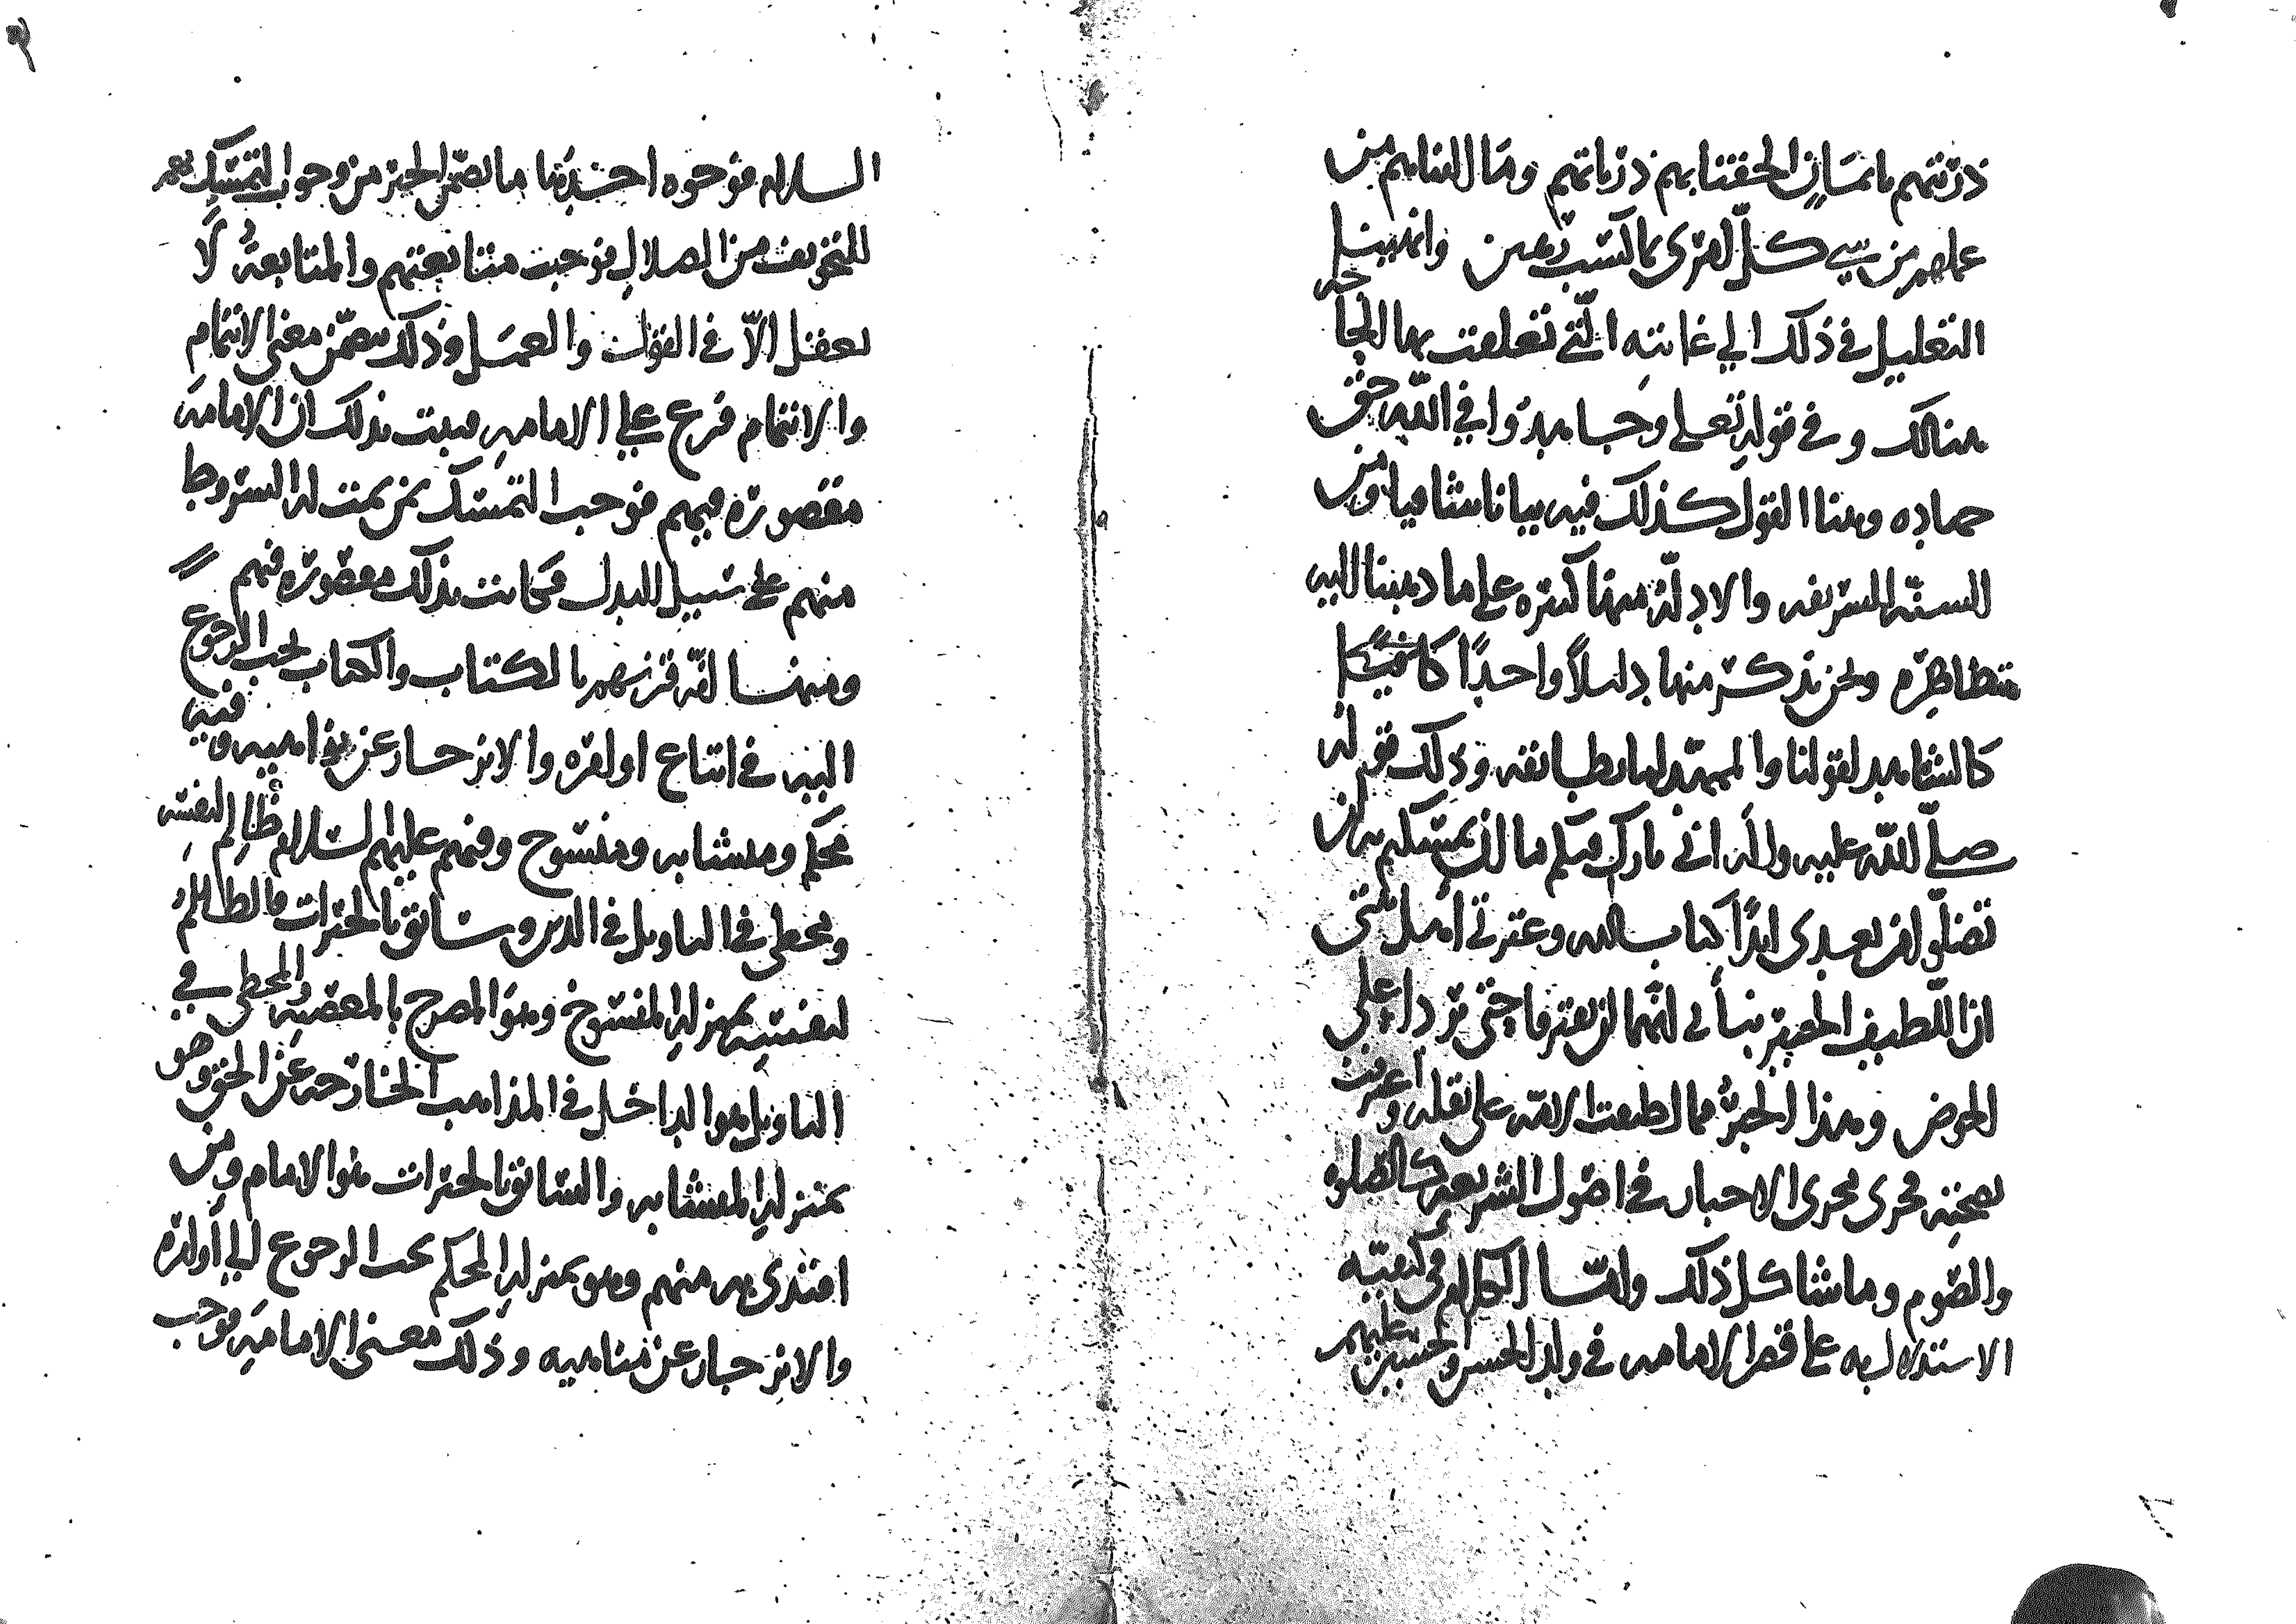 ذريتهم بايمان الحقنا بهم ذرياتهم وما التناهم من
عملهم من شي كل امرى بما كسب رهين وانتهينا
التعليل في ذلك الى غايته التي تعلقت بها الحاجه
هنالك و في قوله تعلى وجاهدوا في الله حق
جهاده وهنا القول كذلك فيه بيانا شافيا ومن
السنه الشريفه والادلة منها كثيره على ما ذهبنا اليه
متظاهره ونحن نذكر منها دليلاً واحدًا كافيًا
كالشاهد لقولنا والممهد لما يطابقه وذلك قوله
صلى الله عليه واله اني تارك فيكم ما ان تمسكتم به لن
تضلوا من بعدي ابدًا كتاب الله وعترتي اهل بيتي
ان اللطيف الخبير نبأني انهما لن يفترقا حتى يردا علي
الحوض وهذا الخبر مما اطبقت الامه على نقله واعترفت
بصحته فجرى مجرى الاخبار في اصول الشريعه كالصلوه
والصوم وما شاكل ذلك واما الكلام في كيفيه
الاستدلال به على قصر الامامه في ولد الحسن والحسين عليهم
السلام فوجوه احدها ما تضمن الخبر من وجوب التمسك بهم
للتخويف من الضلال فوجبت متابعتهم والمتابعة لا
تعقل الا في القول والعمل وذلك يتضمن معنى الائتمام
والائتمام فرع على الامامه فثبت بذلك ان الامامه
مقصوره فيهم فوجب التمسك بمن تمت له الشروط
منهم على سبيل البدل فكانت بذلك مقصوره فيهم
ومنها انه قرنهم بالكتاب والكتاب يجب الرجوع
اليه في اتباع اوامره والانزجار عن نواهيه وفيه
محكم ومتشابه ومنسوخ وفيهم عليهم السلام ظالم لنفسه
ومخطي في التاويل في الدين وسابق بالخيرات فالظالم
لنفسه بمنزلة المنسوخ وهو المصرح بالمعصيه والمخطي في
التاويل هو الداخل في المذاهب الخارجه عن الحق وهو
بمنزلة المتشابه والسابق بالخيرات هو الامام ومن
اقتدى به منهم وهو بمنزلة المحكم يجب الرجوع الى أوامره
والانزجار عن مناهيه وذلك معنى الامامه فوجب